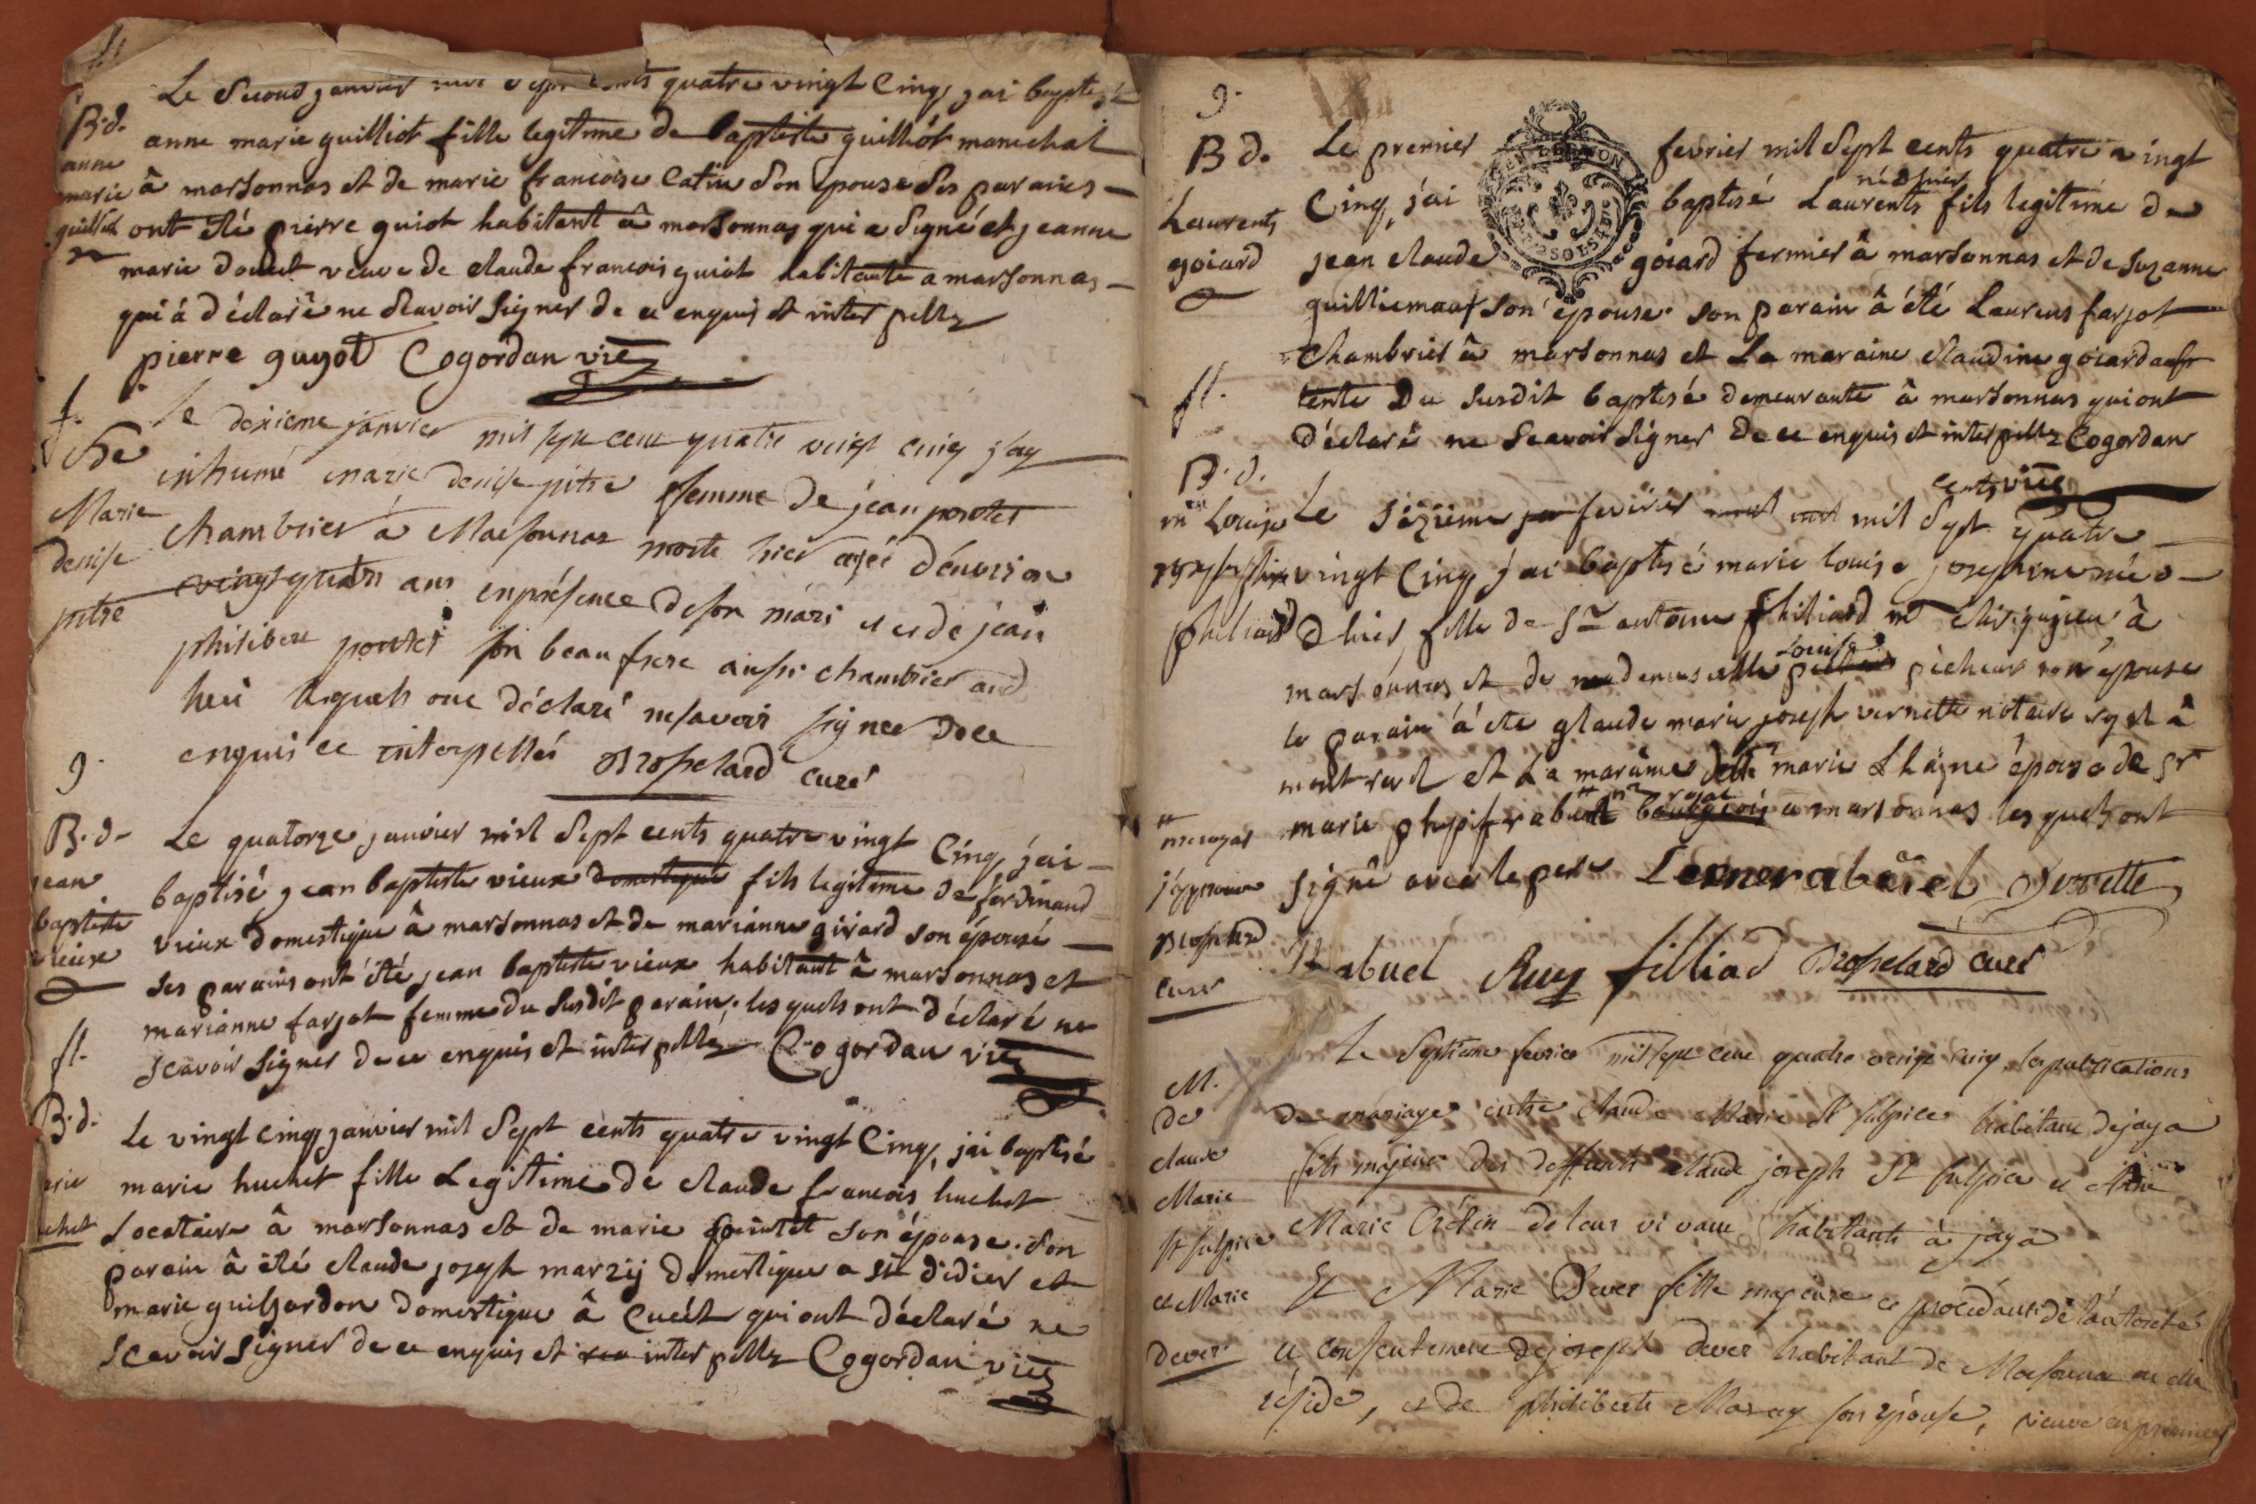 Le Second janvier mil Sept cents quatre vingt Cinq, jai baptisé
B. d.
anne
marie
guilliot
anne marie guilliot fille legitime de baptiste guilliot marechal
â marsonnas et de marie francoise Catin Son epouse Ses parains
ont été pierre guiot habitant â marsonnas qui a Signé et jeanne
marie douch veuve de claude francois guiot habitante a marsonnas
qui â déclaré ne Scavoir Signer de ce enquis et interpellz
pierre guyot Cogordan vic
f.
Se
Marie
denise
pitre
le dexieme janvier mil sept cent quatre vingt cinq j'ay
inhumé marie denise pitre femme de jean poutet
chambrier à Marsonnas morte hier agée d'environ
vingt quatre ans en présence de son mari et de jean
philibert poutet son beau frere aussi chambrier aud
lieu lesquels ont déclaré ne savoir signer de ce
enquis et interpellés Brosselard curé
g.
B. d.
jean
baptiste
vieux
Le quatorze janvier mil Sept cents quatre vingt Cinq, jai
baptisé jean baptiste vieux domestique fils legitime de ferdinand
vieux domestique â marsonnas et de marianne girard son épouse
ses parains ont été jean baptiste vieux habitant â marsonnas et
marianne farjot femme du Susdit parain, les quels ont déclaré ne
scavoir Signer de ce enquis et interpellé Cogordan vic
fl.
B. d.
arie
uchet
Le vingt cinq janvier mil Sept cents quatre vingt Cinq, jai baptisé
marie huchet fille Legitime de claude francois huchet
Locataire â marsonnas et de marie son épouse. Son
parain â été claude joseph marzij domestique a St didier et
marie guilhordon domestique â Cuét qui ont déclaré ne
Scavoir Signer de ce enquis et interpellz Cogordan vic
g.
B d.
Laurents
goiard
Le premier fevrier mil Sept cents quatre vingt
Cinq, jai baptisé Laurents né d'hier fils legitime de
jean claude goiard fermier â marsonnas et de Suzanne
guilliemauf son épouse. son parain â été Laurens farjot
chambrier â marsonnas et La maraine claudine goiard
tente du Susdit baptisé demeurante â marsonnas qui ont
déclaré ne Scavoir Signer de ce enquis et interpellz Cogordan
vic
fl.
B. d.
m Louise
josephine
philiard
Le Sezieme fevrier mil Sept cents quatre
vingt Cinq, jai baptisé marie louise josephine née
d'hier, fille de Sr antoine philiard md chirurgien â
marsonnas et de mademoiselle Louise pecheur son épouse
le parain â été glaude marie joseph vernette notaire royal â
montrevel et La maraine delle marie Lhayne épouse de Sr
marie rabuel nre royal bourgeois a marsonnas les quels ont
signé avec le pere Leone rabuel Vernette
nre royal
j'approuve
Brosselard
curé
Rabuel filliad Brosselard curé
M.
de
claude
Marie
St sulpice
et Marie
dever
Le Septieme fevrier mil sept cent quatre vingt cinq, les publications
de mariage entre claude Marie St sulpice habitant de jaya
fils majeur des deffunts claude joseph St sulpice et
Marie Crétin de leur vivant habitants à jaya
Et Marie Dever fille majeure et procédante de l'autorité
et consentement de joseph dever habitant de Marsonna ou elle
réside, et de philiberte Maray son épouse, veuve en premiere